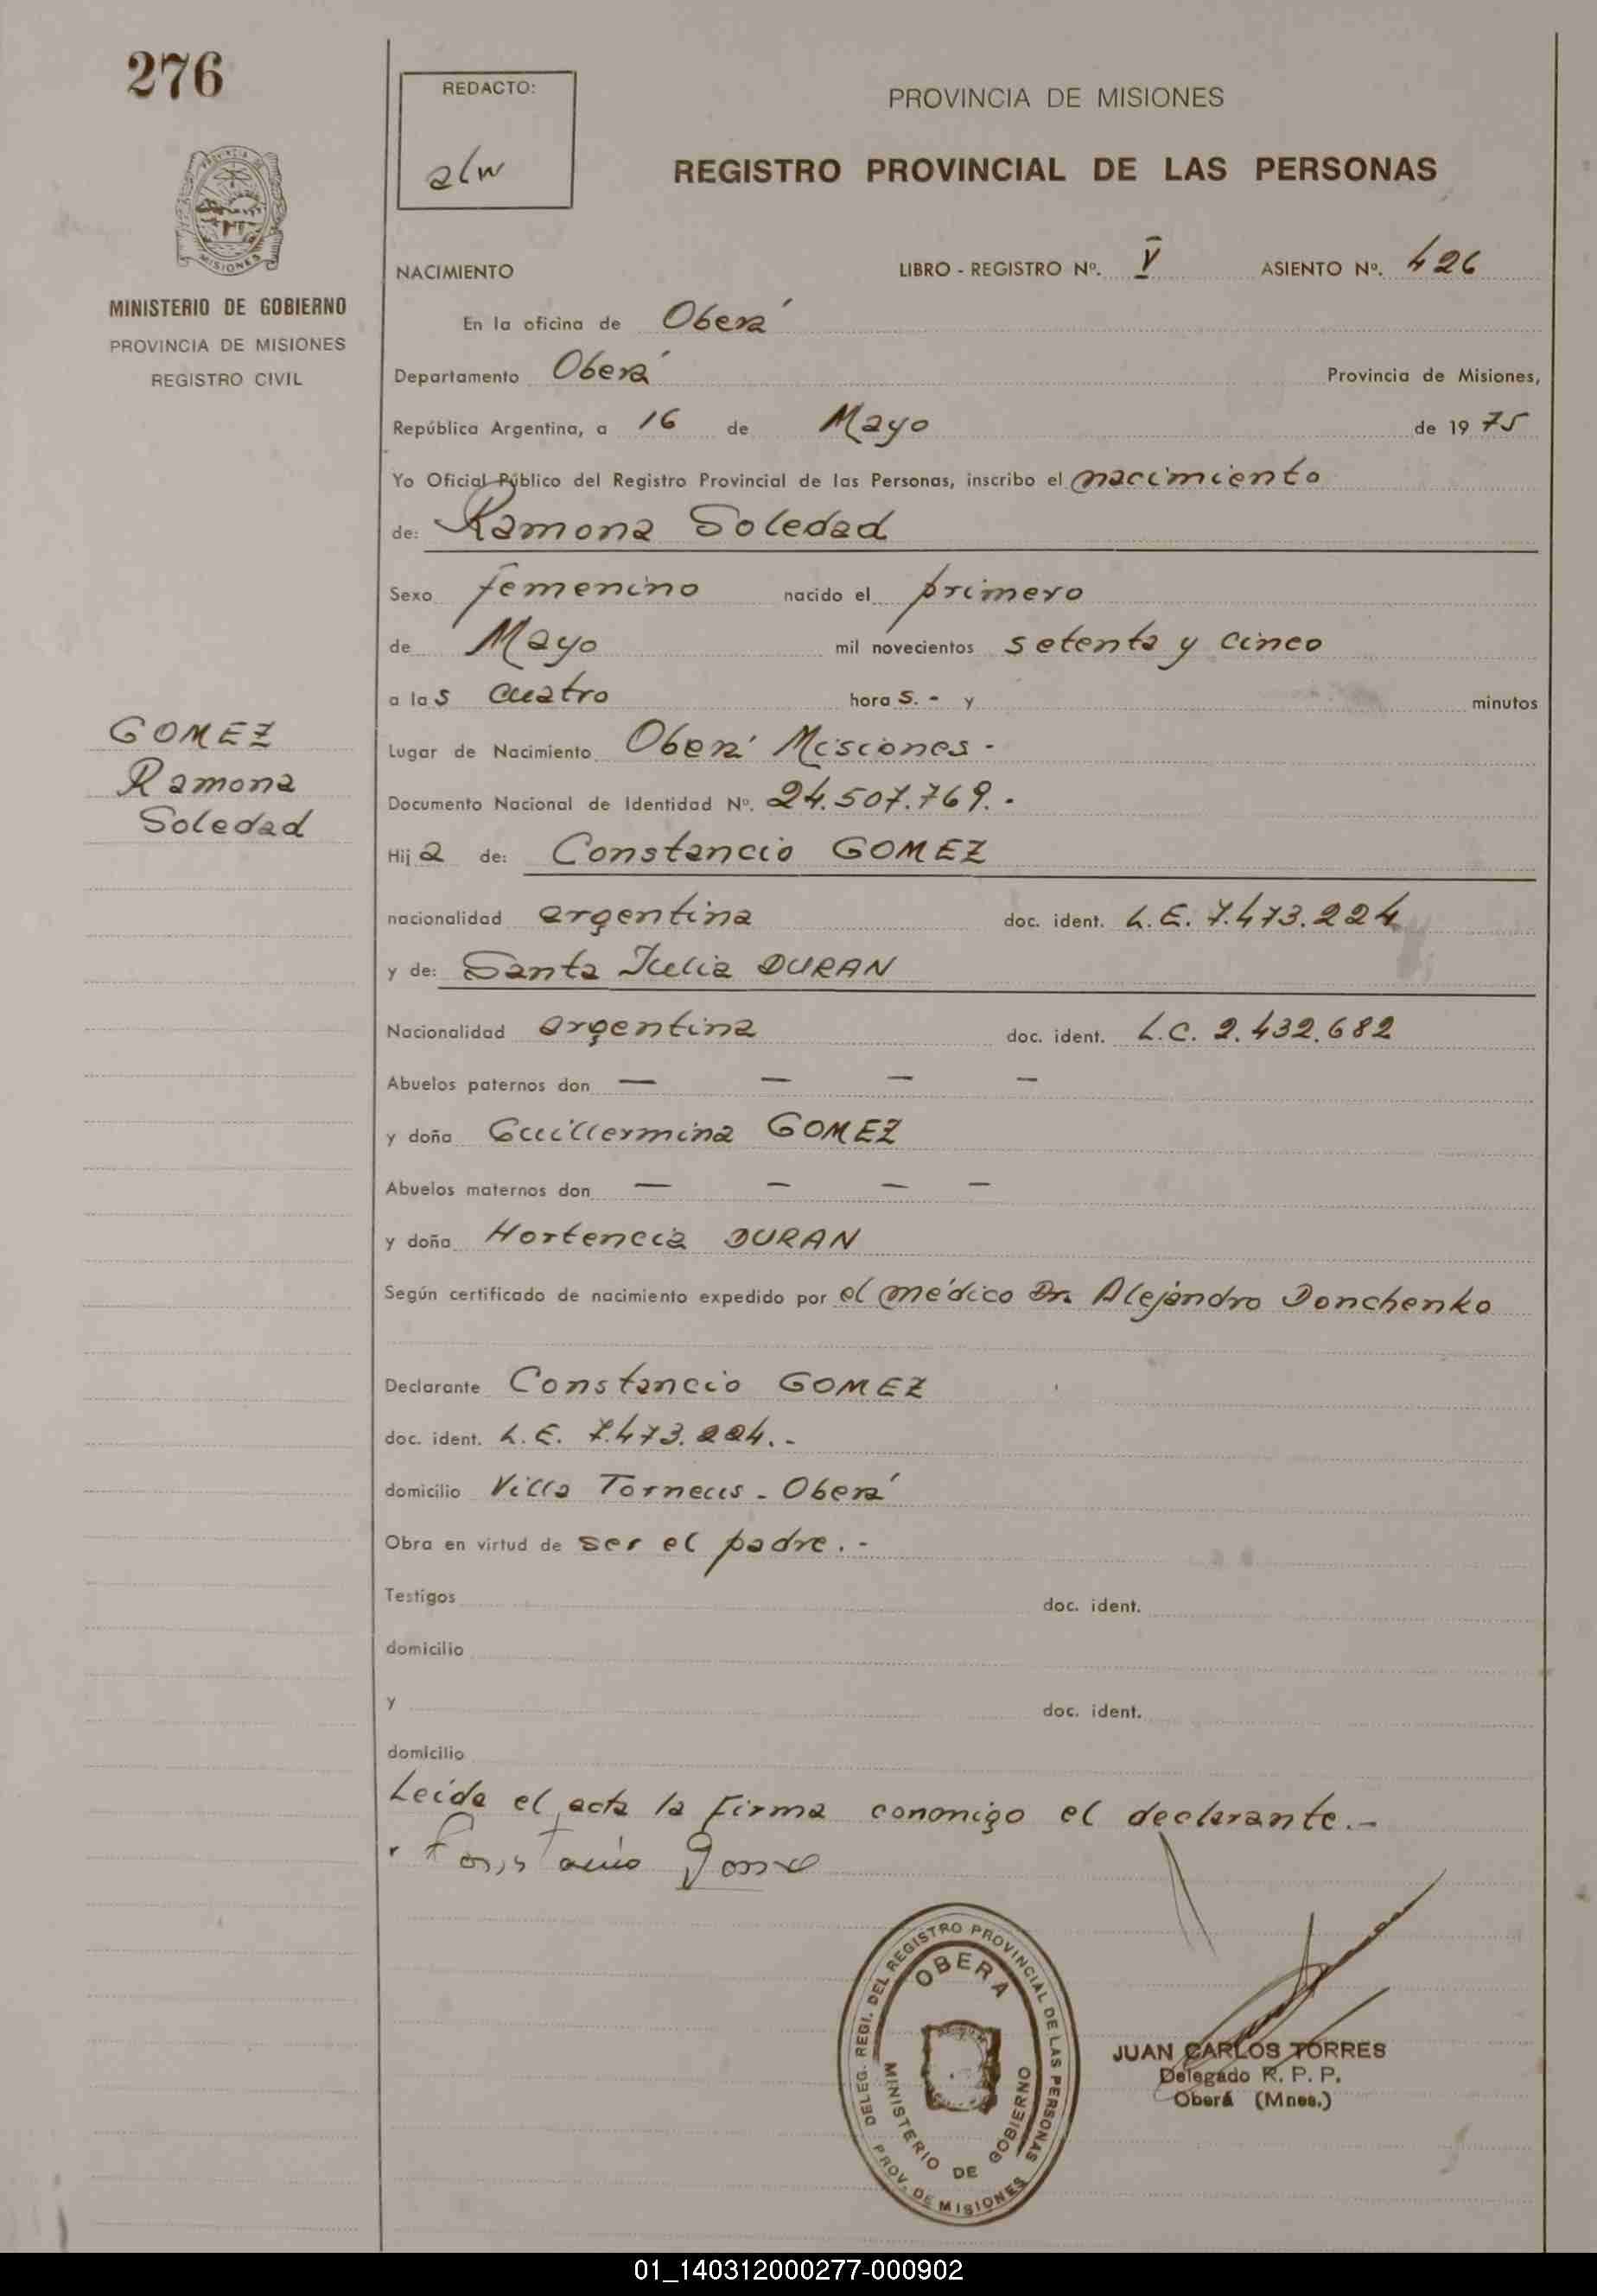 276
REDACTO:
alw
PROVINCIA DE MISIONES
REGISTRO PROVINCIAL DE LAS PERSONAS
MINISTERIO DE GOBIERNO
PROVINCIA DE MISIONES
REGISTRO CIVIL
NACIMIENTO LIBRO - REGISTRO Nº. V ASIENTO Nº. 426
En la oficina de Oberá
Departamento Oberá Provincia de Misiones,
República Argentina, a 16 de Mayo de 1975
Yo Oficial Público del Registro Provincial de las Personas, inscribo el nacimiento
de: Ramona Soledad
Sexo femenino nacido el primero
de Mayo mil novecientos setenta y cinco
a las cuatro horas.- y minutos
GOMEZ
Ramona
Soledad
Lugar de Nacimiento Oberá Misiones-
Documento Nacional de Identidad Nº. 24.507.769.-
Hija de: Constancio GOMEZ
nacionalidad argentina doc. ident. L.E. 7.473.224
y de: Santa Julia DURAN
Nacionalidad argentina doc. ident. L.C. 2.432.682
Abuelos paternos don — — — —
y doña Guillermina GOMEZ
Abuelos maternos don — — — —
y doña Hortencia DURAN
Según certificado de nacimiento expedido por el médico Dr. Alejandro Donchenko
Declarante Constancio GOMEZ
doc. ident. L.E. 7.473.224.-
domicilio Villa Torneus - Oberá
Obra en virtud de ser el padre.-
Testigos doc. ident.
domicilio
y doc. ident.
domicilio
Leída el acta la firma conomigo el declarante.-
Constancio Gome
DELEG. REGI. DEL REGISTRO PROVINCIAL DE LAS PERSONAS
OBERA
MINISTERIO DE GOBIERNO
PROV. DE MISIONES
JUAN CARLOS TORRES
Delegado R. P. P.
Oberá (Mnes.)
01_140312000277-000902